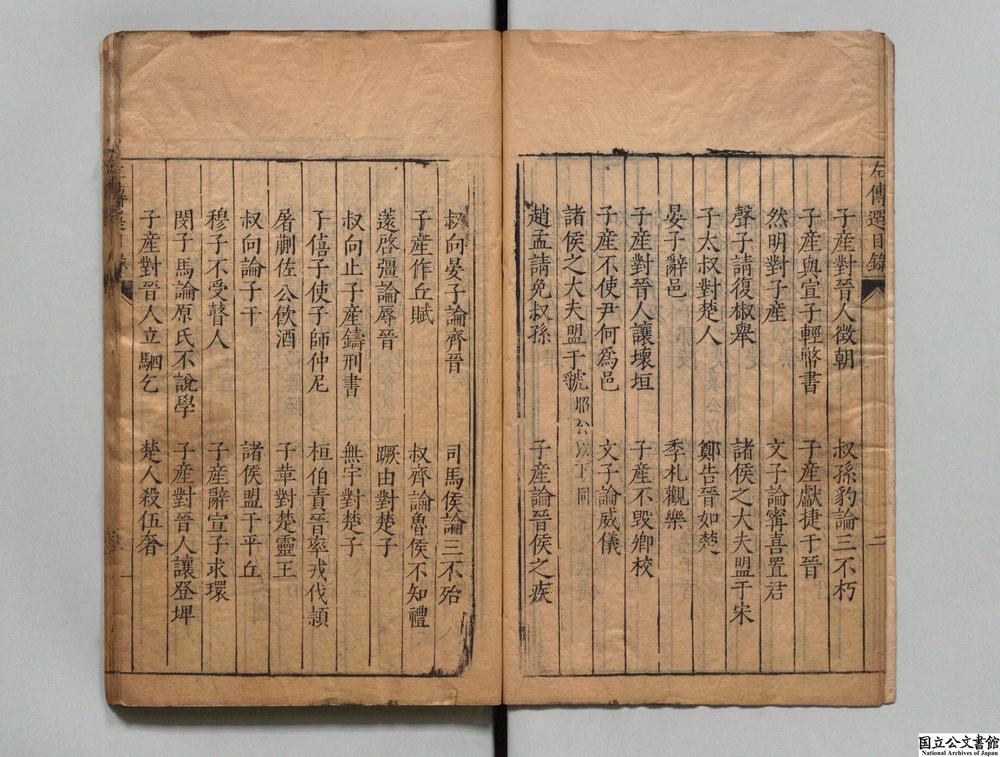 左傳選目錄
子產對晉人徵朝　叔孫豹論三不朽
子產與宣子輕幣書　子產獻捷于晉
然明對子產　文子論甯喜置君
聲子請復椒舉　諸侯之大夫盟于宋
子太叔對楚人　鄭告晉如楚
晏子辭邑　季札觀樂
子產對晉人讓壞垣　子產不毀鄉校
子產不使尹何爲邑　文子論威儀
諸侯之大夫盟于虢 昭公以下同
趙孟請免叔孫　子產論晉侯之疾
二
叔向晏子論齊晉　司馬侯論三不殆
子產作丘賦　叔齊論魯侯不知禮
薳啓彊論辱晉　蹶由對楚子
叔向止子產鑄刑書　無宇對楚子
子僖子使子師仲尼　桓伯責晉率戎伐潁
屠蒯佐公飲酒　子革對楚靈王
叔向論子干　諸侯盟于平丘
穆子不受鼓人　子產辭宣子求環
閔子馬論原氏不說學　子產對晉人讓登埤
子產對晉人立駟乞　楚人殺伍奢
国立公文書館
National Archives of Japan